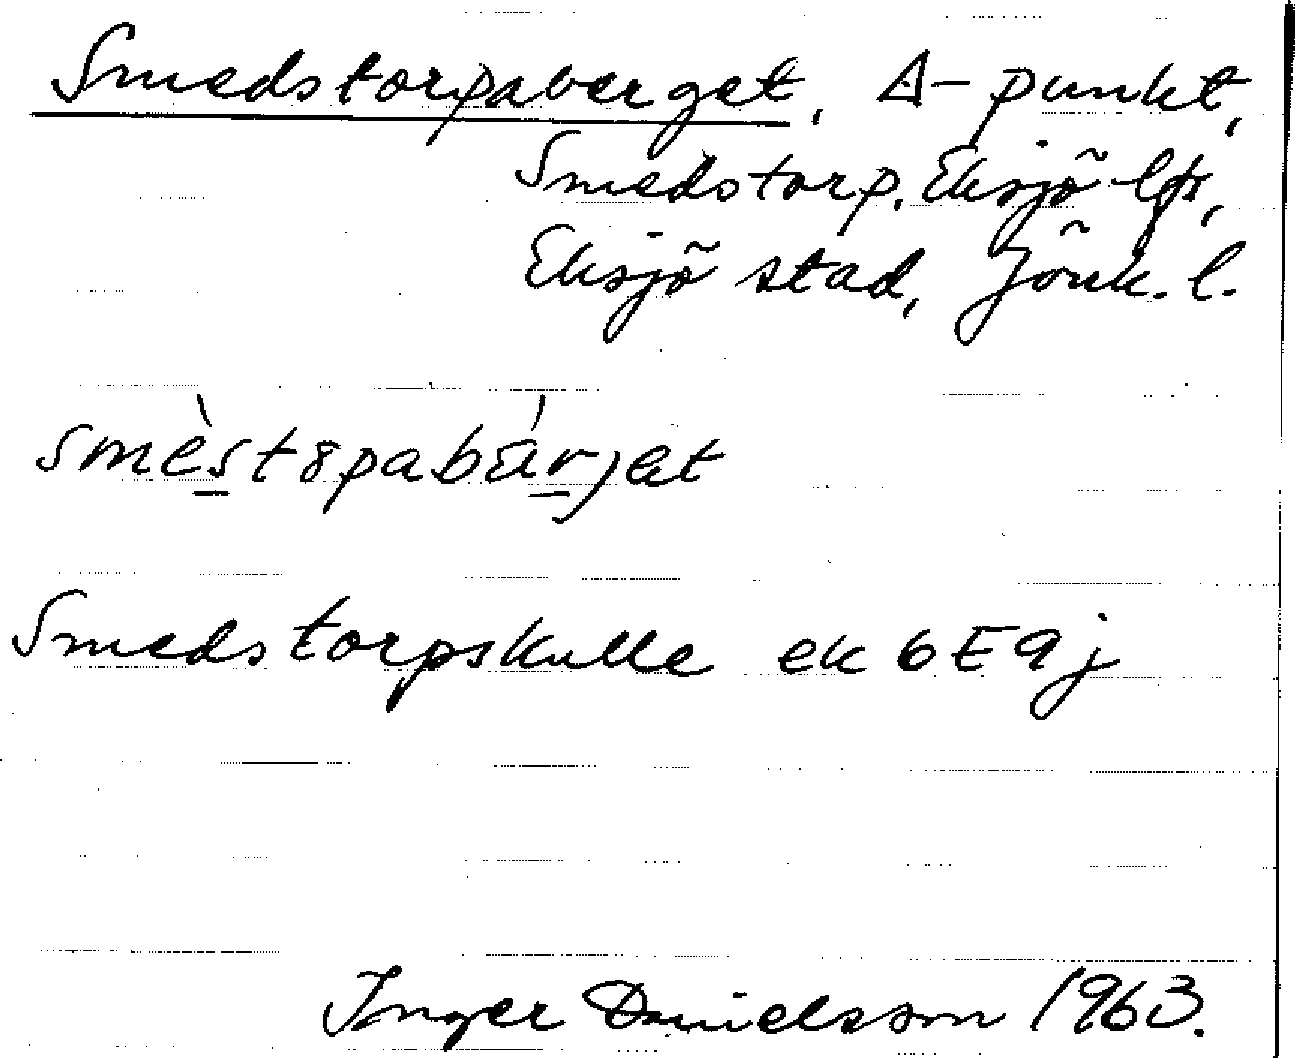 Smedstorpaberget, Δ-punkt,
Smedstorp, Eksjö lfs,
Eksjö stad, Jönk. l.
smèstɷpabárjet
Smedstorpskulle ek 6E9j
Inger Danielsson 1963.